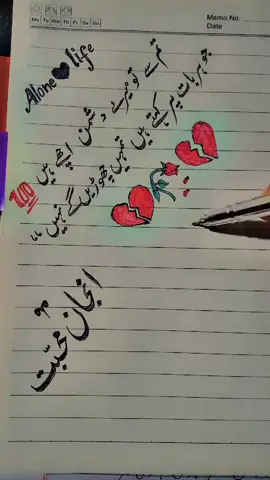 Memo No.
Mo Tu We Th Fr Sa Su
Date
Alone life
تم سے تو میرے دشمن اچھے ہیں
جو ہر بات پر کہتے ہیں تمہیں چھوڑیں گے نہیں
100
انجان محبّت